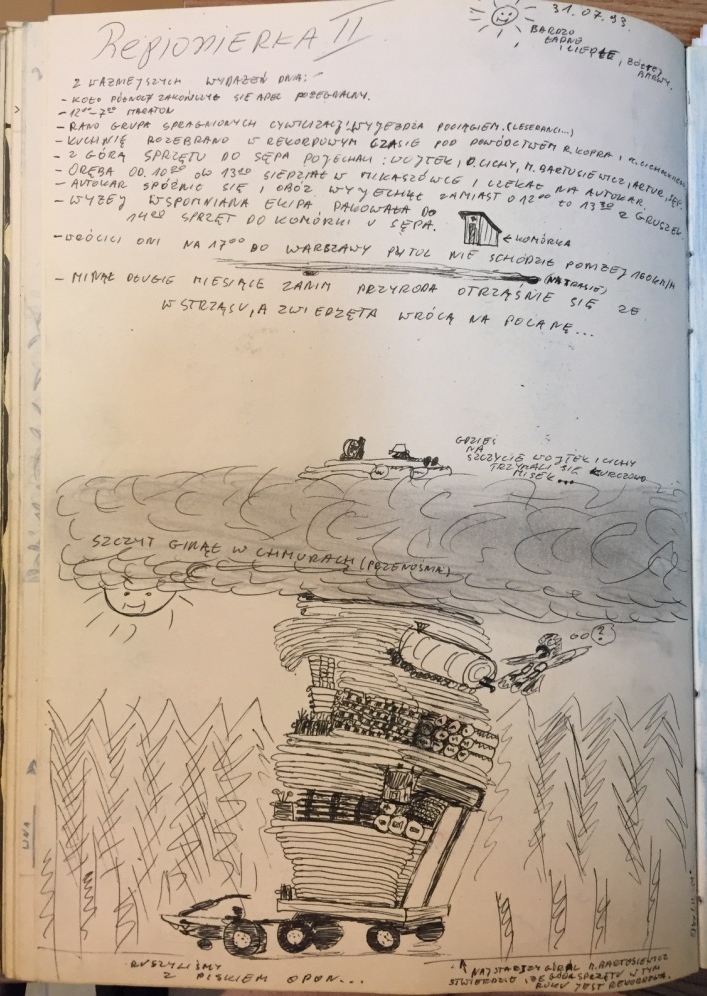 31.07.93.
BARDZO
ŁADNE
I CIEPŁE, ŻÓŁTEJ
BARWY.
REJONIERKA II
Z WAŻNIEJSZYCH WYDAŻEŃ DNIA:
- KOŁO PÓŁNOCY ZAKOŃCZYŁ SIĘ APEL POŻEGNALNY.
- MARATON
- RANO GRUPA SPRAGNIONYCH CYWILIZACJI WYJEŻDŻA POCIĄGIEM. (LESERANCI...)
- KUCHNIĘ ROZEBRANO W REKORDOWYM CZASIE POD DOWÓDCTWEM R. KOPRA I
- Z GÓRĄ SPRZĘTU DO SĘPA POJECHALI: WOJTEK, D. CICHY, M. BARTUSIEWICZ, ARTUR, SĘP.
- ORĘBA OD 10 DO 13 SIEDZIAŁ W MIKASZÓWCE I CZEKAŁ NA AUTOKAR.
- AUTOKAR SPÓŹNIŁ SIĘ I OBÓZ WYJECHAŁ ZAMIAST O 12 TO 13 Z GRUSZEK
- WYŻEJ WSPOMNIANA EKIPA PAKOWAŁA DO
14 SPRZĘT DO KOMÓRKI U SĘPA.
← KOMÓRKA
- WRÓCILI ONI NA 17 DO WARSZAWY NIE SCHODZIĆ PONIŻEJ 160 KM/H
(NA TRASIE)
- MINĄŁ DŁUGIE MIESIĄCE ZANIM PRZYRODA OTRZĄŚNIE SIĘ ZE
WSTRZĄSU, A ZWIERZĘTA WRÓCĄ NA POLANĘ...
GDZIEŚ
NA
SZCZYCIE WOJTEK I CICHY
TRZYMALI SIĘ KURCZOWO
MISEK...
SZCZYT GINĄŁ W CHMURACH (PRZENOŚNIA)
?
RUSZYLIŚMY
Z PISKIEM OPON...
NAJSTARSZY GÓRAL M. BARTUSIEWICZ
STWIERDZIŁ, ŻE GÓRA SPRZĘTU W TYM
ROKU JEST REKORDOWA.